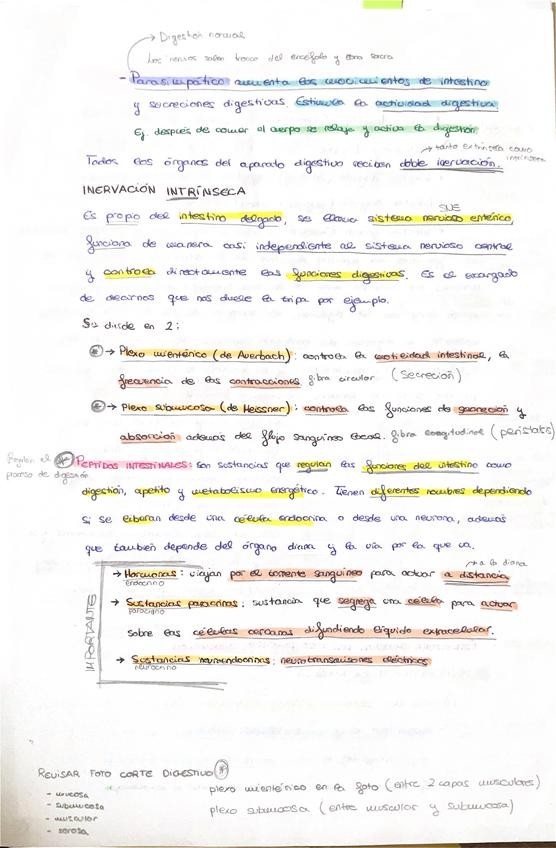 Digestión normal
Los nervios salen tronco del encéfalo y zona sacra
- Parasimpático aumenta los movimientos de intestino
y secreciones digestivas. Estimula la actividad digestiva
Ej. después de comer el cuerpo se relaja y activa la digestión
tanto extrínseca como intrínseca
Todos los órganos del aparato digestivo reciben doble inervación.
INERVACIÓN INTRÍNSECA
SNE
Es propio del intestino delgado, se llama sistema nervioso entérico,
funciona de manera casi independiente al sistema nervioso central
y controla directamente las funciones digestivas. Es el encargado
de decirnos que nos duele la tripa por ejemplo.
Se divide en 2:
* → Plexo mientérico (de Auerbach): controla la motilidad intestinal, la
frecuencia de las contracciones. fibra circular (secreción)
* → Plexo submucoso (de Meissner): controla las funciones de secreción y
absorción además del flujo sanguíneo local. fibra longitudinal (peristalsis)
Regulan el proceso de digestión
PEPTIDOS INTESTINALES: son sustancias que regulan las funciones del intestino como
digestión, apetito y metabolismo energético. Tienen diferentes nombres dependiendo
si se liberan desde una célula endocrina o desde una neurona, además
que también depende del órgano diana y la vía por la que va.
→ a la diana
IMPORTANTE
→ Hormonas: viajan por el corriente sanguíneo para actuar a distancia
endocrino
→ Sustancias paracrinas: sustancia que segrega una célula para actuar
paracrino
sobre las células cercanas difundiendo líquido extracelular.
→ Sustancias neuroendocrinas: neurotransmisores eléctricos
neurocrino
REVISAR FOTO CORTE DIGESTIVO *
- mucosa
- submucosa
- muscular
- serosa
plexo mientérico en la foto (entre 2 capas musculares)
plexo submucosa (entre muscular y submucosa)